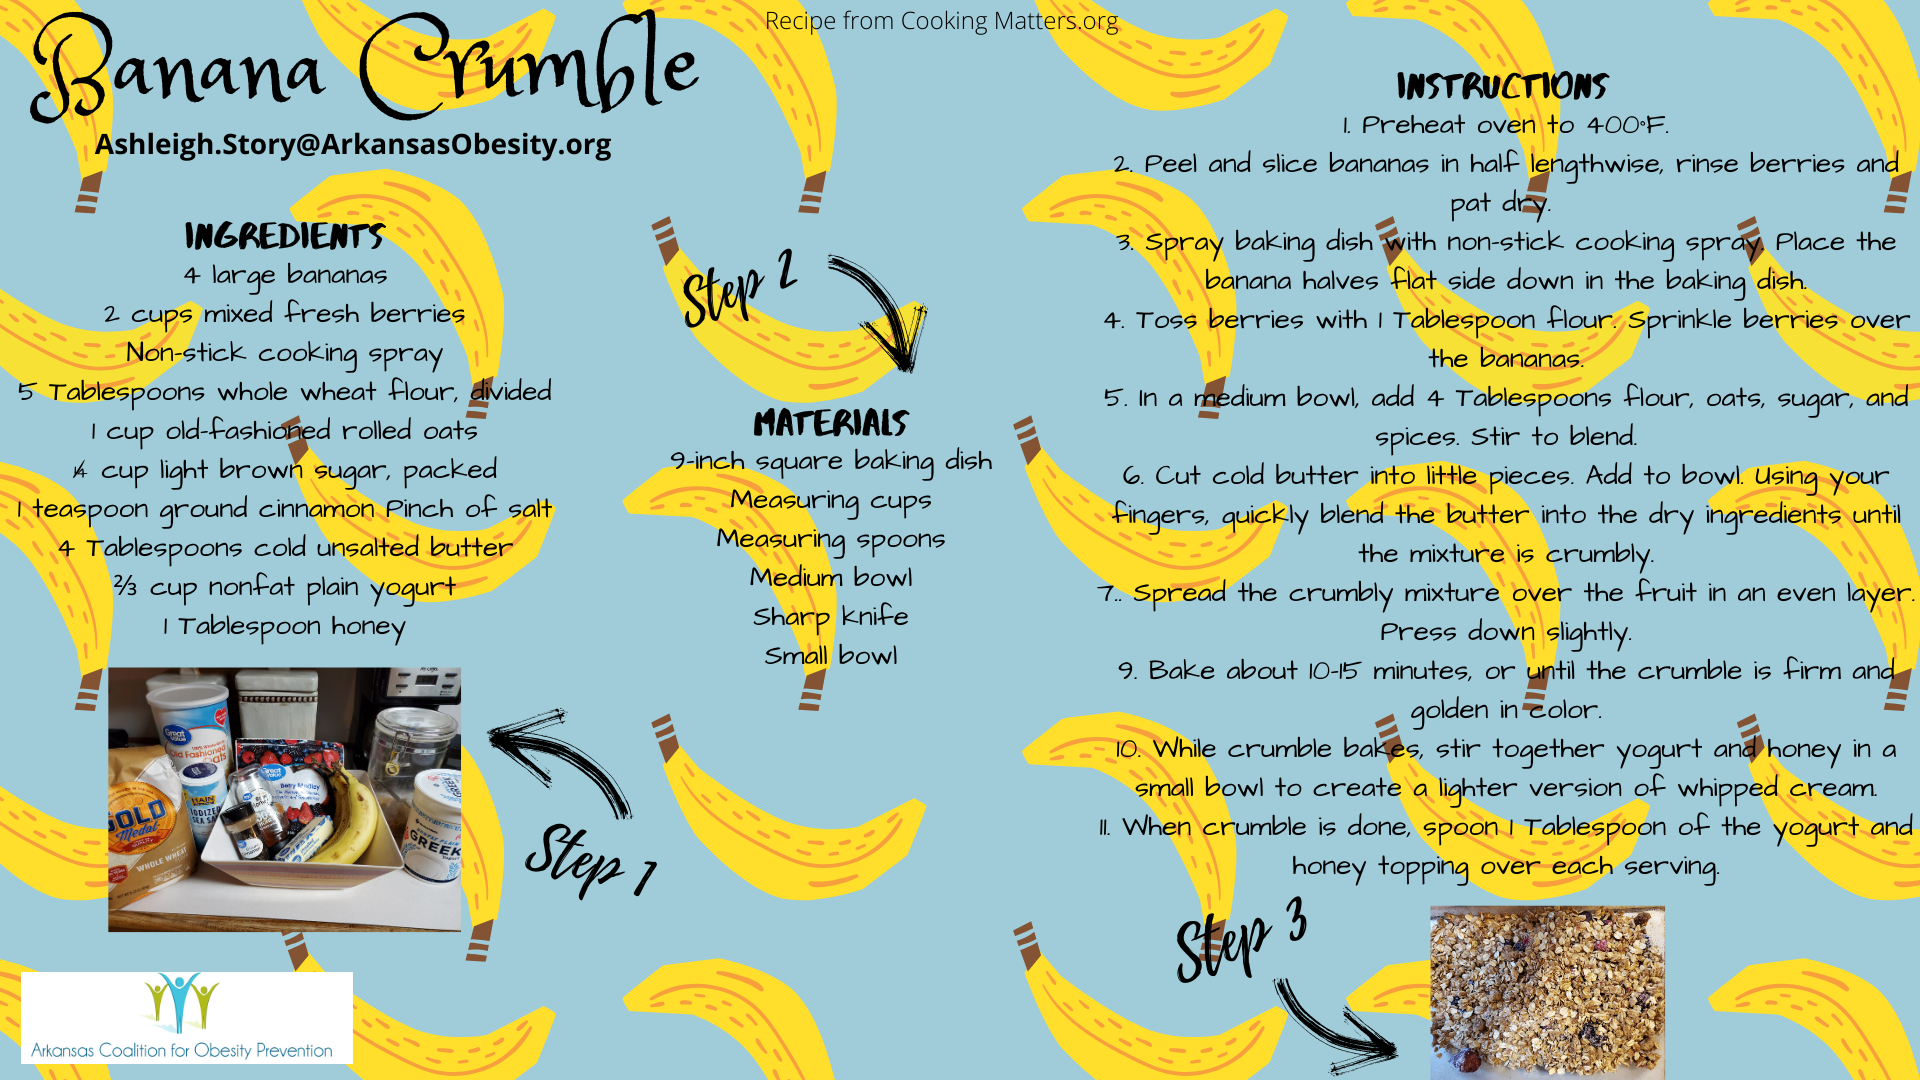 Recipe from Cooking Matters.org
Banana Crumble
Ashleigh.Story@ArkansasObesity.org
INGREDIENTS
4 large bananas
2 cups mixed fresh berries
Non-stick cooking spray
5 Tablespoons whole wheat flour, divided
1 cup old-fashioned rolled oats
¼ cup light brown sugar, packed
1 teaspoon ground cinnamon Pinch of salt
4 Tablespoons cold unsalted butter
⅔ cup nonfat plain yogurt
1 Tablespoon honey
Great Value
Old Fashioned
Oats
IODIZED
SEA SALT
Great Value
Berry Medley
GOLD
Medal
WHOLE WHEAT
GREEK
Step 1
Arkansas Coalition for Obesity Prevention
Step 2
MATERIALS
9-inch square baking dish
Measuring cups
Measuring spoons
Medium bowl
Sharp knife
Small bowl
INSTRUCTIONS
1. Preheat oven to 400°F.
2. Peel and slice bananas in half lengthwise, rinse berries and
pat dry.
3. Spray baking dish with non-stick cooking spray. Place the
banana halves flat side down in the baking dish.
4. Toss berries with 1 Tablespoon flour. Sprinkle berries over
the bananas.
5. In a medium bowl, add 4 Tablespoons flour, oats, sugar, and
spices. Stir to blend.
6. Cut cold butter into little pieces. Add to bowl. Using your
fingers, quickly blend the butter into the dry ingredients until
the mixture is crumbly.
7.. Spread the crumbly mixture over the fruit in an even layer.
Press down slightly.
9. Bake about 10-15 minutes, or until the crumble is firm and
golden in color.
10. While crumble bakes, stir together yogurt and honey in a
small bowl to create a lighter version of whipped cream.
11. When crumble is done, spoon 1 Tablespoon of the yogurt and
honey topping over each serving.
Step 3